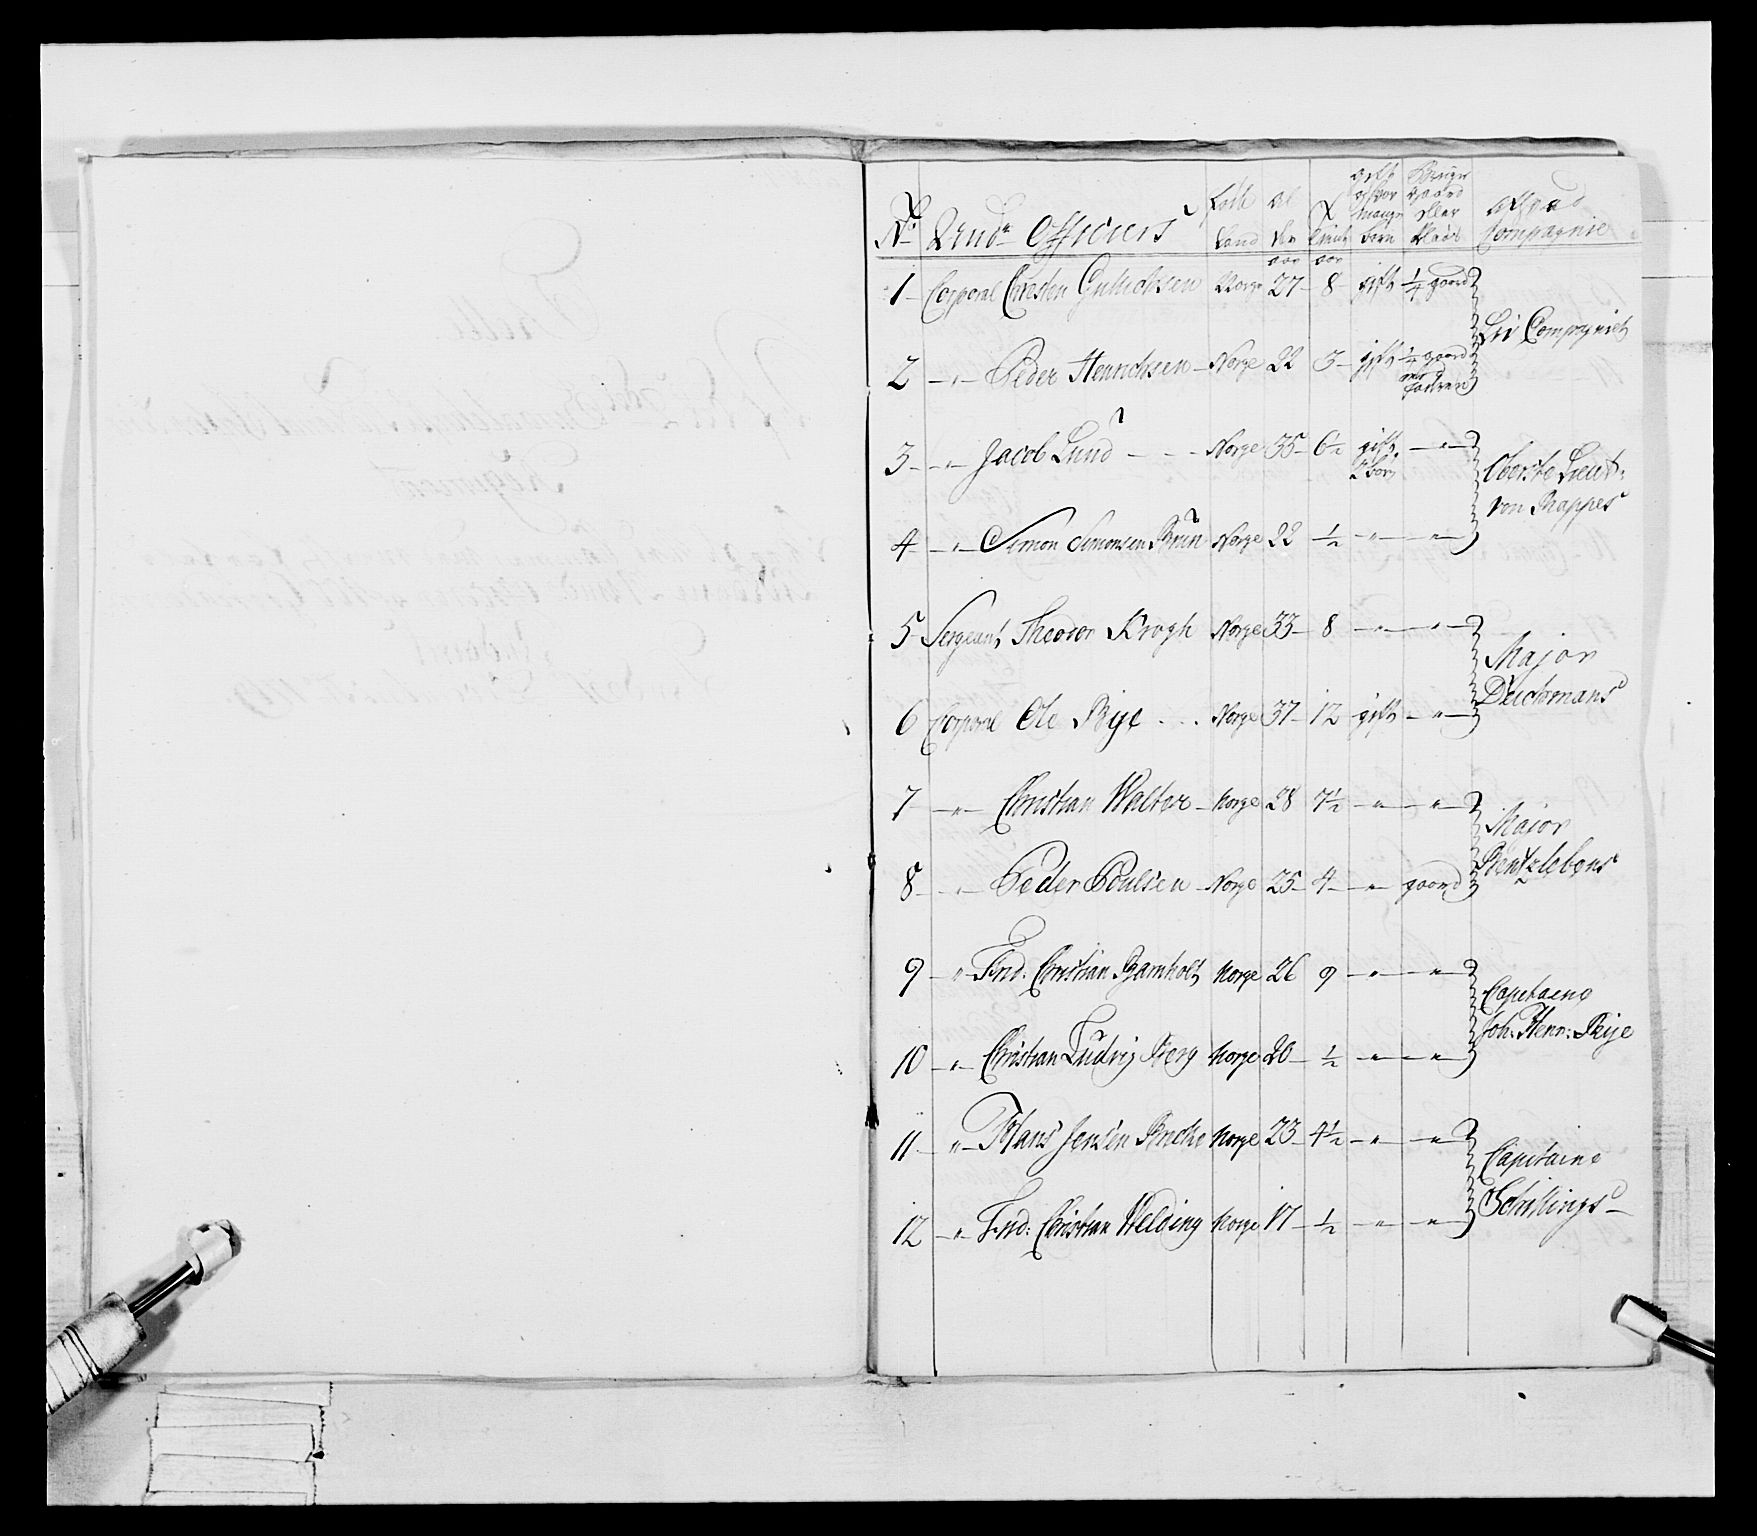 No Undr Officiers Føde Land Al der aar Tient aar gift hvor mange børn Bruger gaard eller Plads af hvad Compagnie
1 Corporal Christen Gulichsen Norge 27 8 gift 1/4 gaard
Liv Compagniet
2 " Peder Henrichsen Norge 22 3 gift 1/4 gaard
3 " Jacob Lund Norge 35 6 1/2 gift 2 børn "
Oberste Lieut: von Rappes
4 " Simon Simonsen Brun Norge 22 1/2 " "
5 Sergeant Theodor Krogh Norge 33 8 " "
Major Deichmans
6 Corporal Ole Bye Norge 37 12 gift "
7 " Christian Walter Norge 28 7 1/2 " "
Major Rentzlebens
8 " Peder Poulsen Norge 25 4 " gaard
9 " Frid: Christian Bamholt Norge 26 9 " "
Capitaine Joh: Henr: Bije
10 " Christian Ludvig Berg Norge 20 1/2 " "
11 " Hans Jensen Norge 23 4 1/2 " "
Capitaine Schillings
12 " Frid: Christian Welding Norge 17 1/2 " "